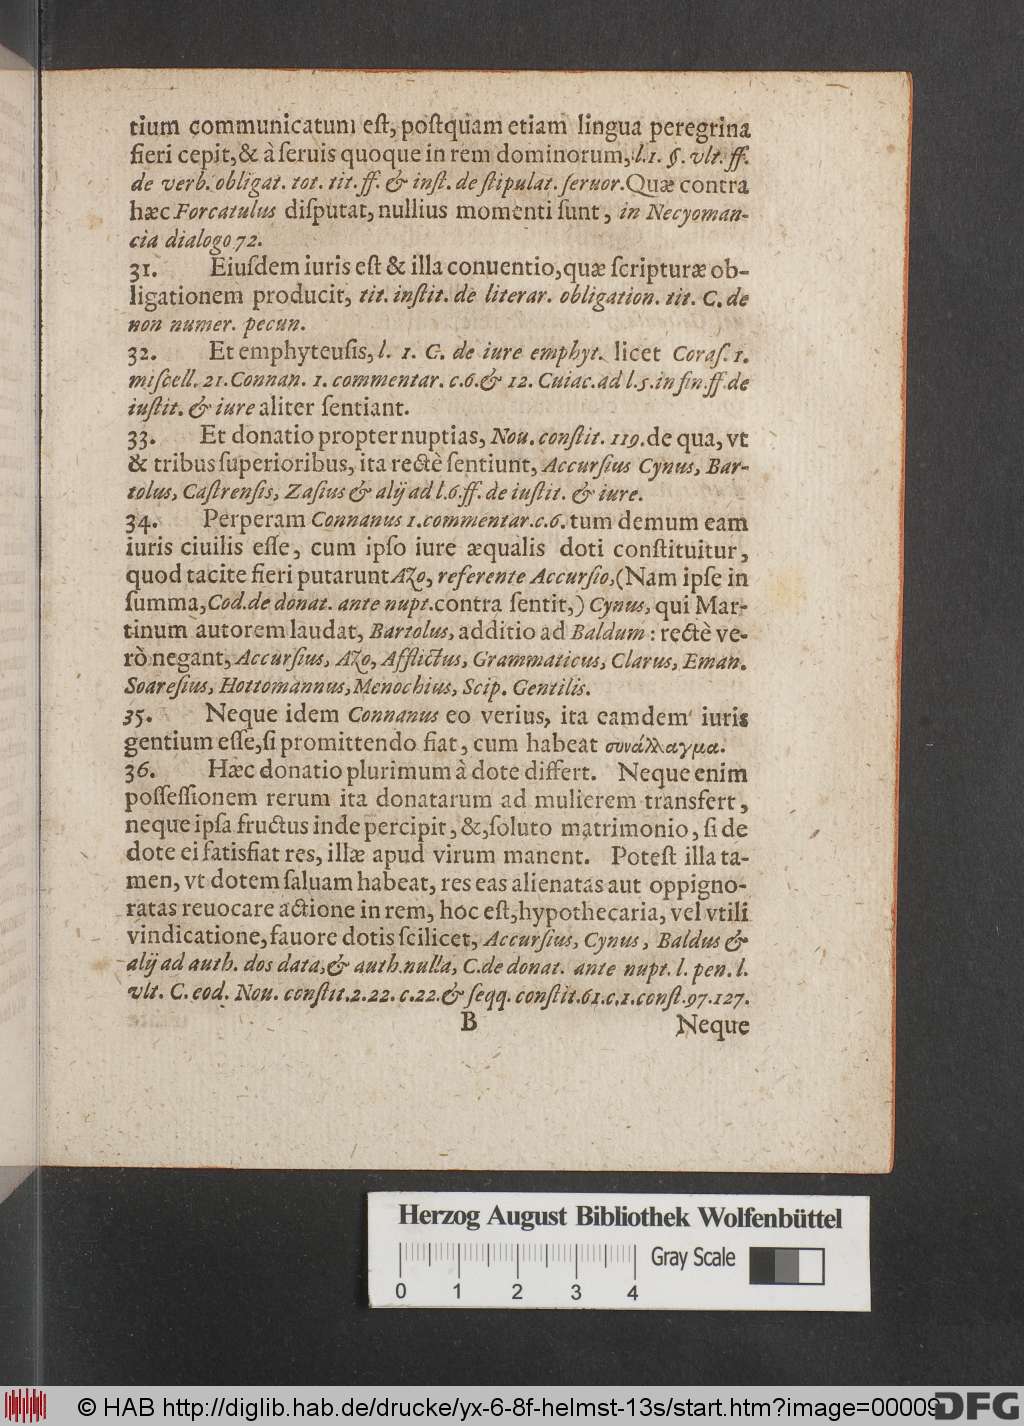 tium communicatum eſt, poſtquam etiam lingua peregrina
fieri cepit, & à ſeruis quoque in rem dominorum, l. 1. §. vlt. ff.
de verb. obligat. tot. tit. ff. & inſt. de ſtipulat. ſeruor. Quæ contra
hæc Forcatulus diſputat, nullius momenti ſunt, in Necyoman-
cia dialogo 72.
31. Eiuſdem iuris eſt & illa conuentio, quæ ſcripturæ ob-
ligationem producit, tit. inſtit. de literar. obligation. tit. C. de
non numer. pecun.
32. Et emphyteuſis, l. 1. C. de iure emphyt. licet Coraſ. 1.
miſcell. 21. Connan. 1. commentar. c. 6. & 12. Cuiac. ad l. 5. in fin. ff. de
iuſtit. & iure aliter ſentiant.
33. Et donatio propter nuptias, Nou. conſtit. 119. de qua, vt
& tribus ſuperioribus, ita rectè ſentiunt, Accurſius Cynus, Bar-
tolus, Caſtrenſis, Zaſius & alij ad l. 6. ff. de iuſtit. & iure.
34. Perperam Connanus 1. commentar. c. 6. tum demum eam
iuris ciuilis eſſe, cum ipſo iure æqualis doti conſtituitur,
quod tacite fieri putarunt Azo, referente Accurſio, (Nam ipſe in
ſumma, Cod. de donat. ante nupt. contra ſentit,) Cynus, qui Mar-
tinum autorem laudat, Bartolus, additio ad Baldum: rectè ve-
rò negant, Accurſius, Azo, Afflictus, Grammaticus, Clarus, Eman.
Soareſius, Hottomannus, Menochius, Scip. Gentilis.
35. Neque idem Connanus eo verius, ita eamdem iuris
gentium eſſe, ſi promittendo fiat, cum habeat συνάλλαγμα.
36. Hæc donatio plurimum à dote differt. Neque enim
poſſeſſionem rerum ita donatarum ad mulierem transfert,
neque ipſa fructus inde percipit, &, ſoluto matrimonio, ſi de
dote ei ſatisfiat res, illæ apud virum manent. Poteſt illa ta-
men, vt dotem ſaluam habeat, res eas alienatas aut oppigno-
ratas reuocare actione in rem, hoc eſt, hypothecaria, vel vtili
vindicatione, fauore dotis ſcilicet, Accurſius, Cynus, Baldus &
alij ad auth. dos data, & auth. nulla, C. de donat. ante nupt. l. pen. l.
vlt. C. eod. Nou. conſtit. 2. 22. c. 22. & ſeqq. conſtit. 61. c. 1. conſt. 97. 127.
B Neque
Herzog August Bibliothek Wolfenbüttel
Gray Scale
0 1 2 3 4
© HAB http://diglib.hab.de/drucke/yx-6-8f-helmst-13s/start.htm?image=00009
DFG